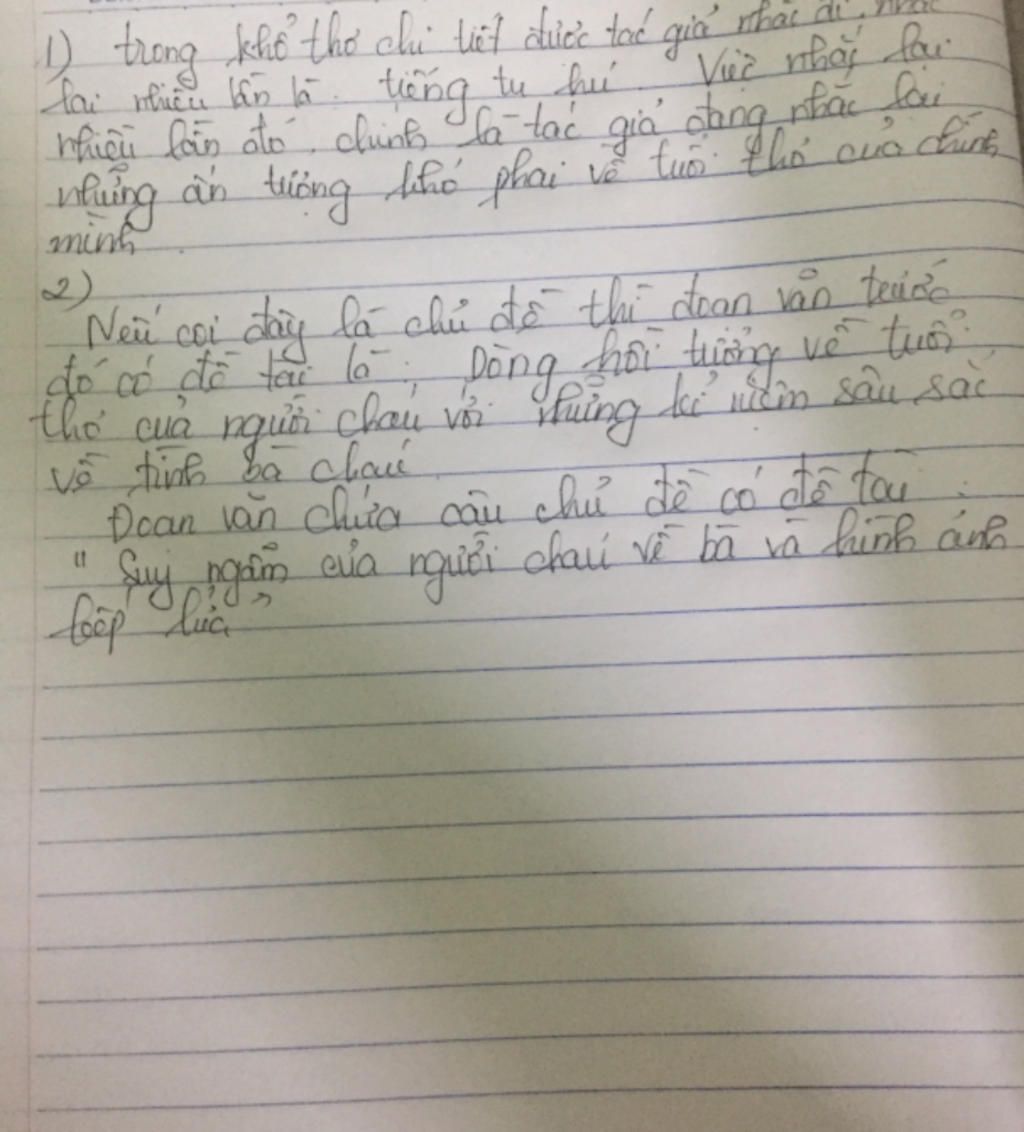 1) trong khổ thơ chi tiết được tác giả nhắc đi, nhắc
lại nhiều lần là: tiếng tu hú. Việc nhắc lại
nhiều lần đó, chính là tác giả đang nhắc lại
những ấn tượng khó phai về tuổi thơ của chính
mình.
2)
Nếu coi đây là chủ đề thì đoạn văn trước
đó có đề tài là: Dòng hồi tưởng về tuổi
thơ của người cháu với những kỉ niệm sâu sắc
về tình bà cháu.
Đoạn văn chứa câu chủ đề có đề tài:
"Suy ngẫm của người cháu về bà và hình ảnh
bếp lửa"